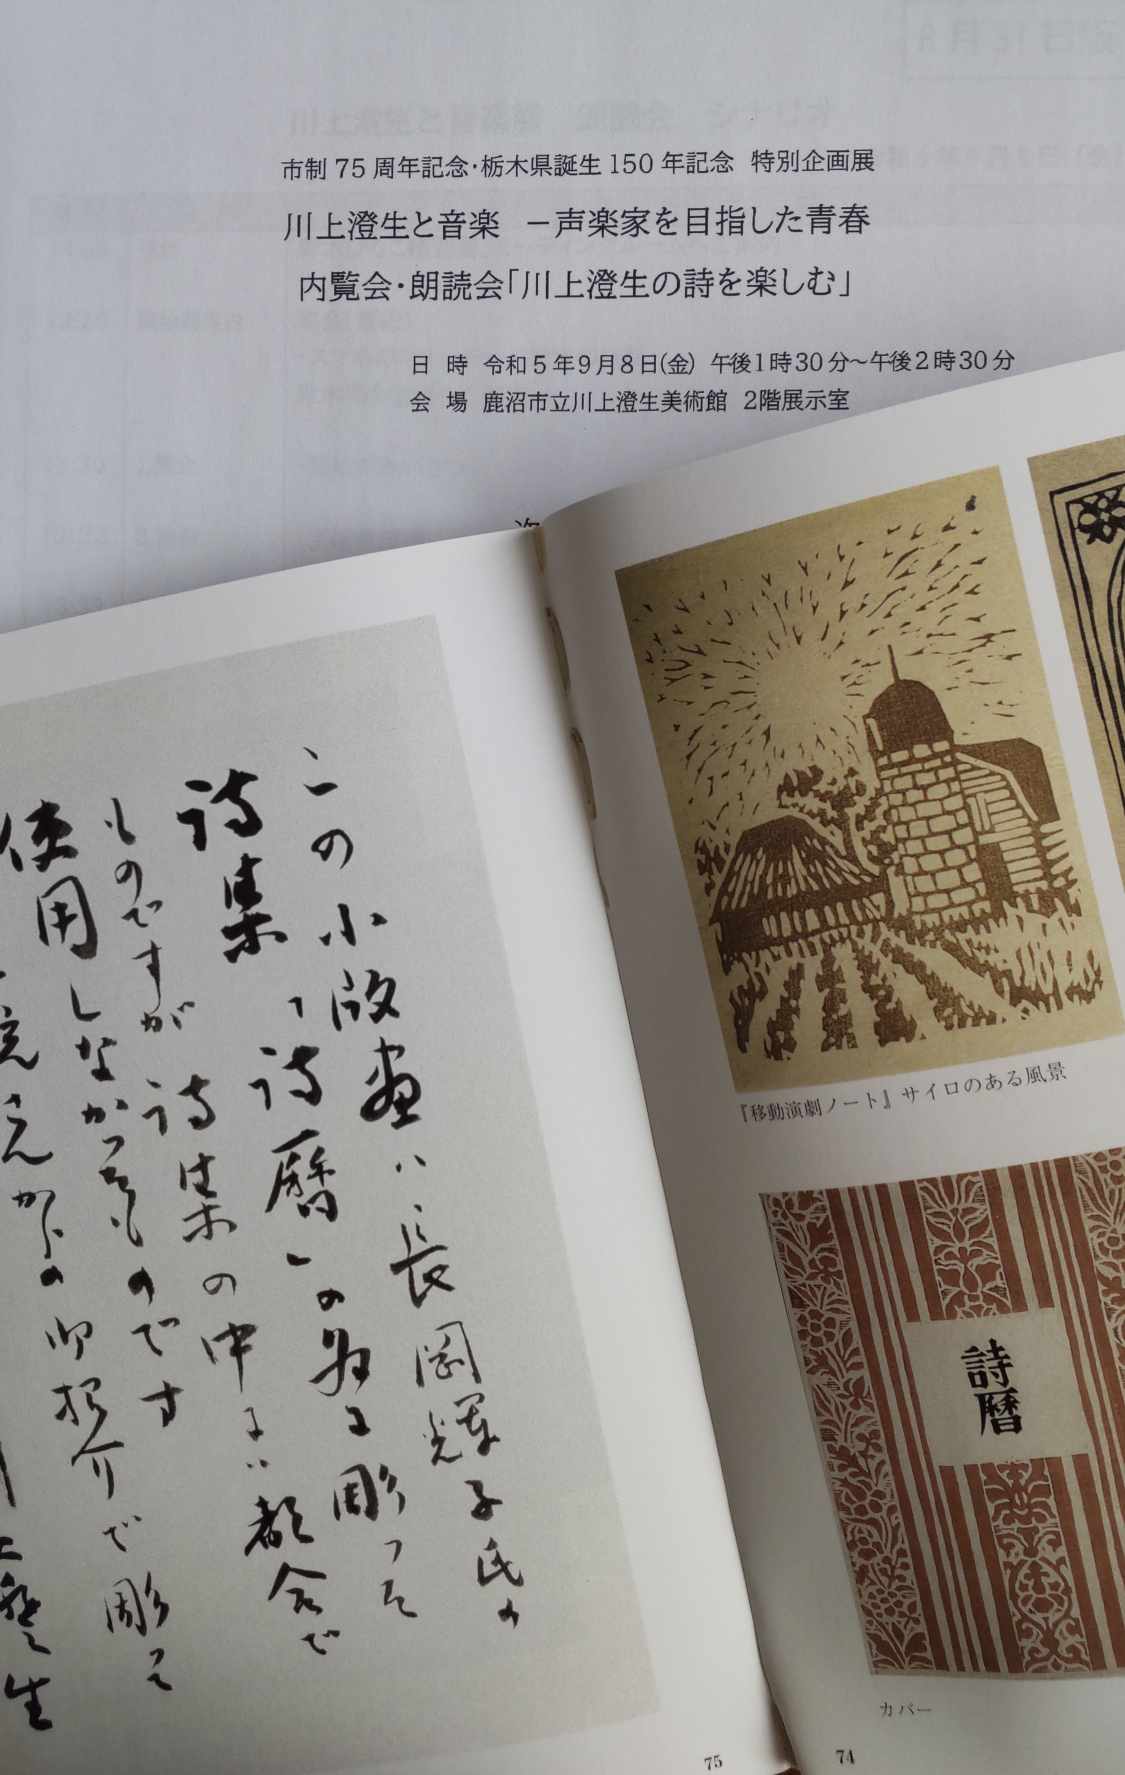 市制75周年記念・栃木県誕生150年記念 特別企画展
川上澄生と音楽 －声楽家を目指した青春
内覧会・朗読会「川上澄生の詩を楽しむ」
日 時 令和5年9月8日(金) 午後1時30分～午後2時30分
会 場 鹿沼市立川上澄生美術館 2階展示室
この小版画は長岡輝子氏の
詩集「詩暦」の為に彫つて
ものですが詩集の中には都合で
使用しなかつたものです
御招介で彫つて
澄生
『移動演劇ノート』サイロのある風景
詩暦
カバー
75
74